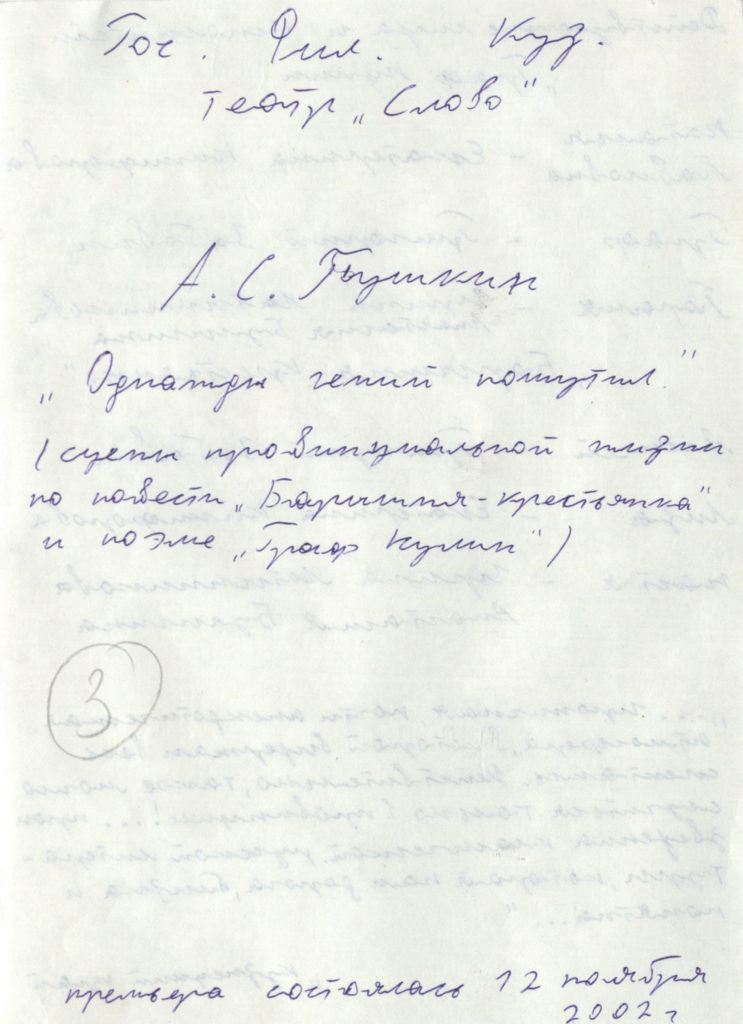 Гос. Фил. Куз.
театр „Слово"
А. С. Пушкин
„Однажды гений пошутил."
(сцены провинциальной жизни
по повести „Барышня-крестьянка"
и поэме „Граф Нулин")
3
премьера состоялась 12 ноября
2002 г